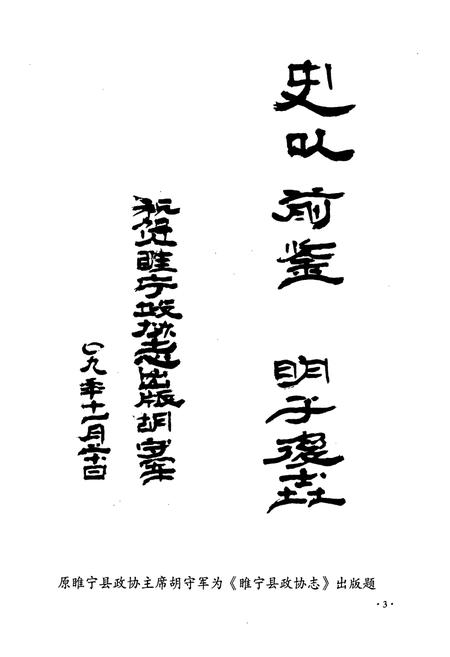 史以前鉴 明于後
祝贺睢宁政协志出版胡守军
〇九年十一月
原睢宁县政协主席胡守军为《睢宁县政协志》出版题
·3·